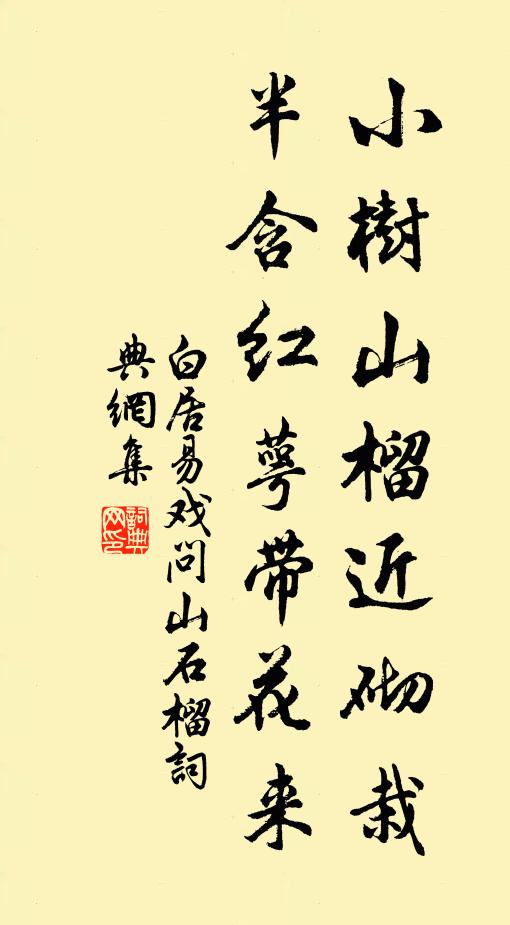 小樹山榴近砌栽
半含红萼带花来
白居易戏问山石榴詞
典網集
詞典网印